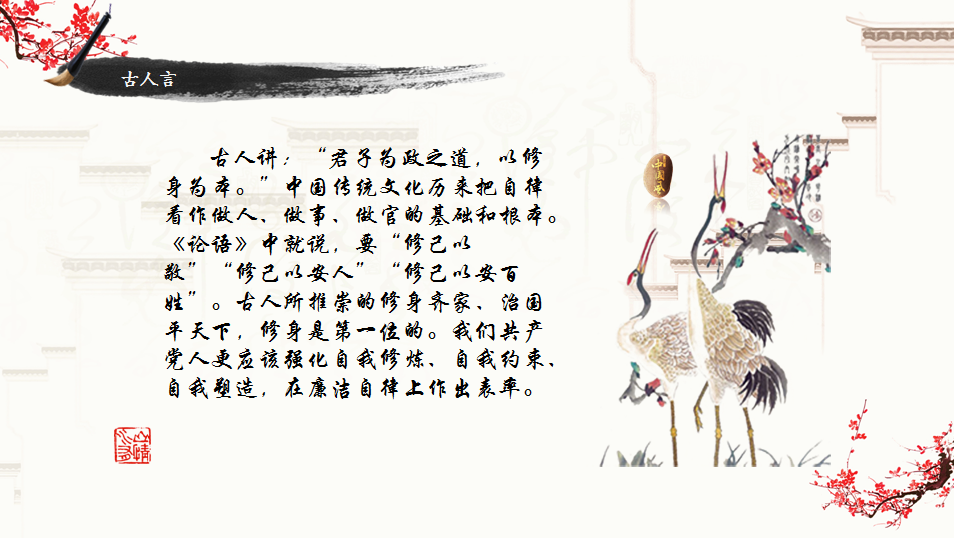 古人言
古人讲："君子为政之道，以修
身为本。"中国传统文化历来把自律
看作做人、做事、做官的基础和根本。
《论语》中就说，要"修己以
敬""修己以安人""修己以安百
姓"。古人所推崇的修身齐家、治国
平天下，修身是第一位的。我们共产
党人更应该强化自我修炼、自我约束、
自我塑造，在廉洁自律上作出表率。
中国风